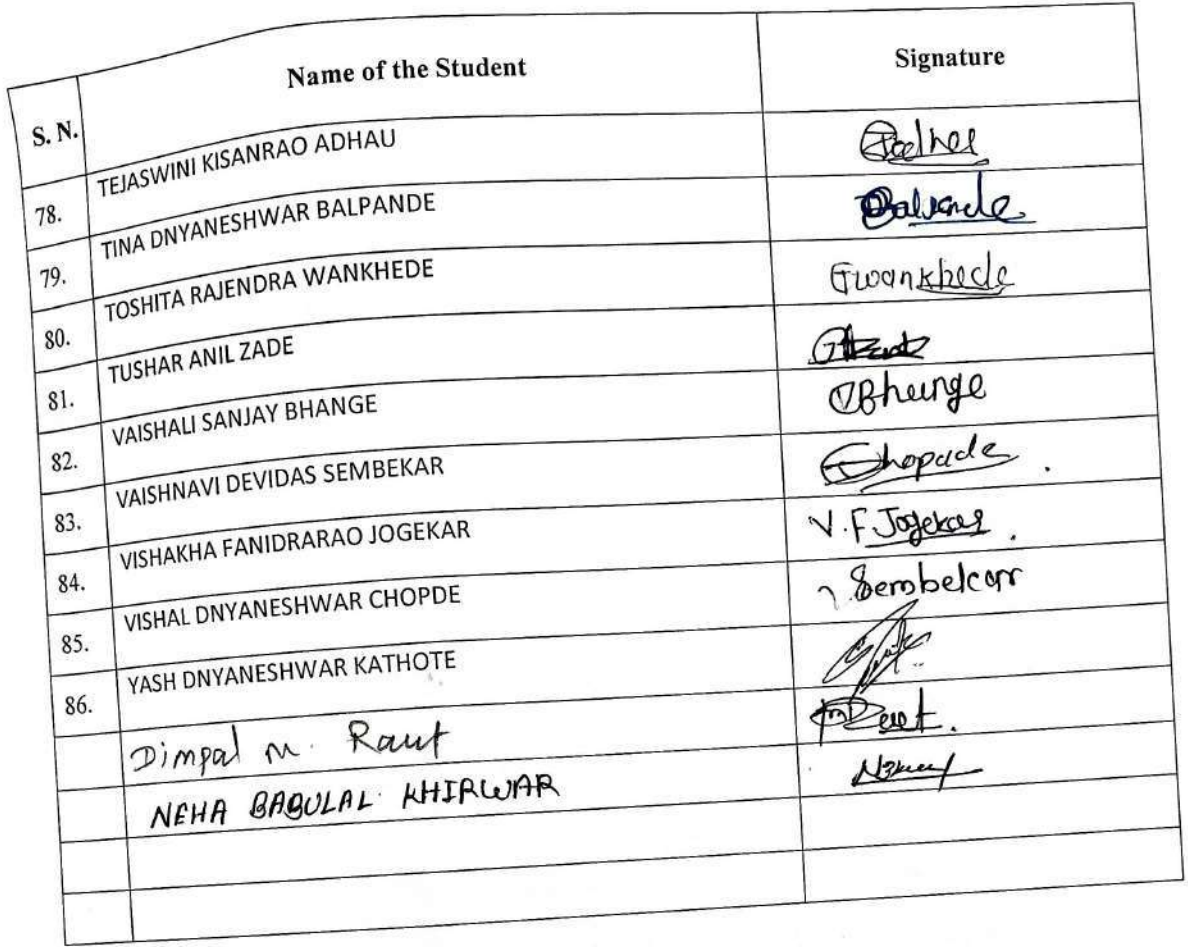 S. N. Name of the Student Signature
78. TEJASWINI KISANRAO ADHAU
79. TINA DNYANESHWAR BALPANDE Balpande
80. TOSHITA RAJENDRA WANKHEDE Twankhede
81. TUSHAR ANIL ZADE
82. VAISHALI SANJAY BHANGE VBhange
83. VAISHNAVI DEVIDAS SEMBEKAR Chopade
84. VISHAKHA FANIDRARAO JOGEKAR V.F.Jogekar
85. VISHAL DNYANESHWAR CHOPDE Sembekar
86. YASH DNYANESHWAR KATHOTE
Dimpal M. Raut
NEHA BABULAL KHIRWAR